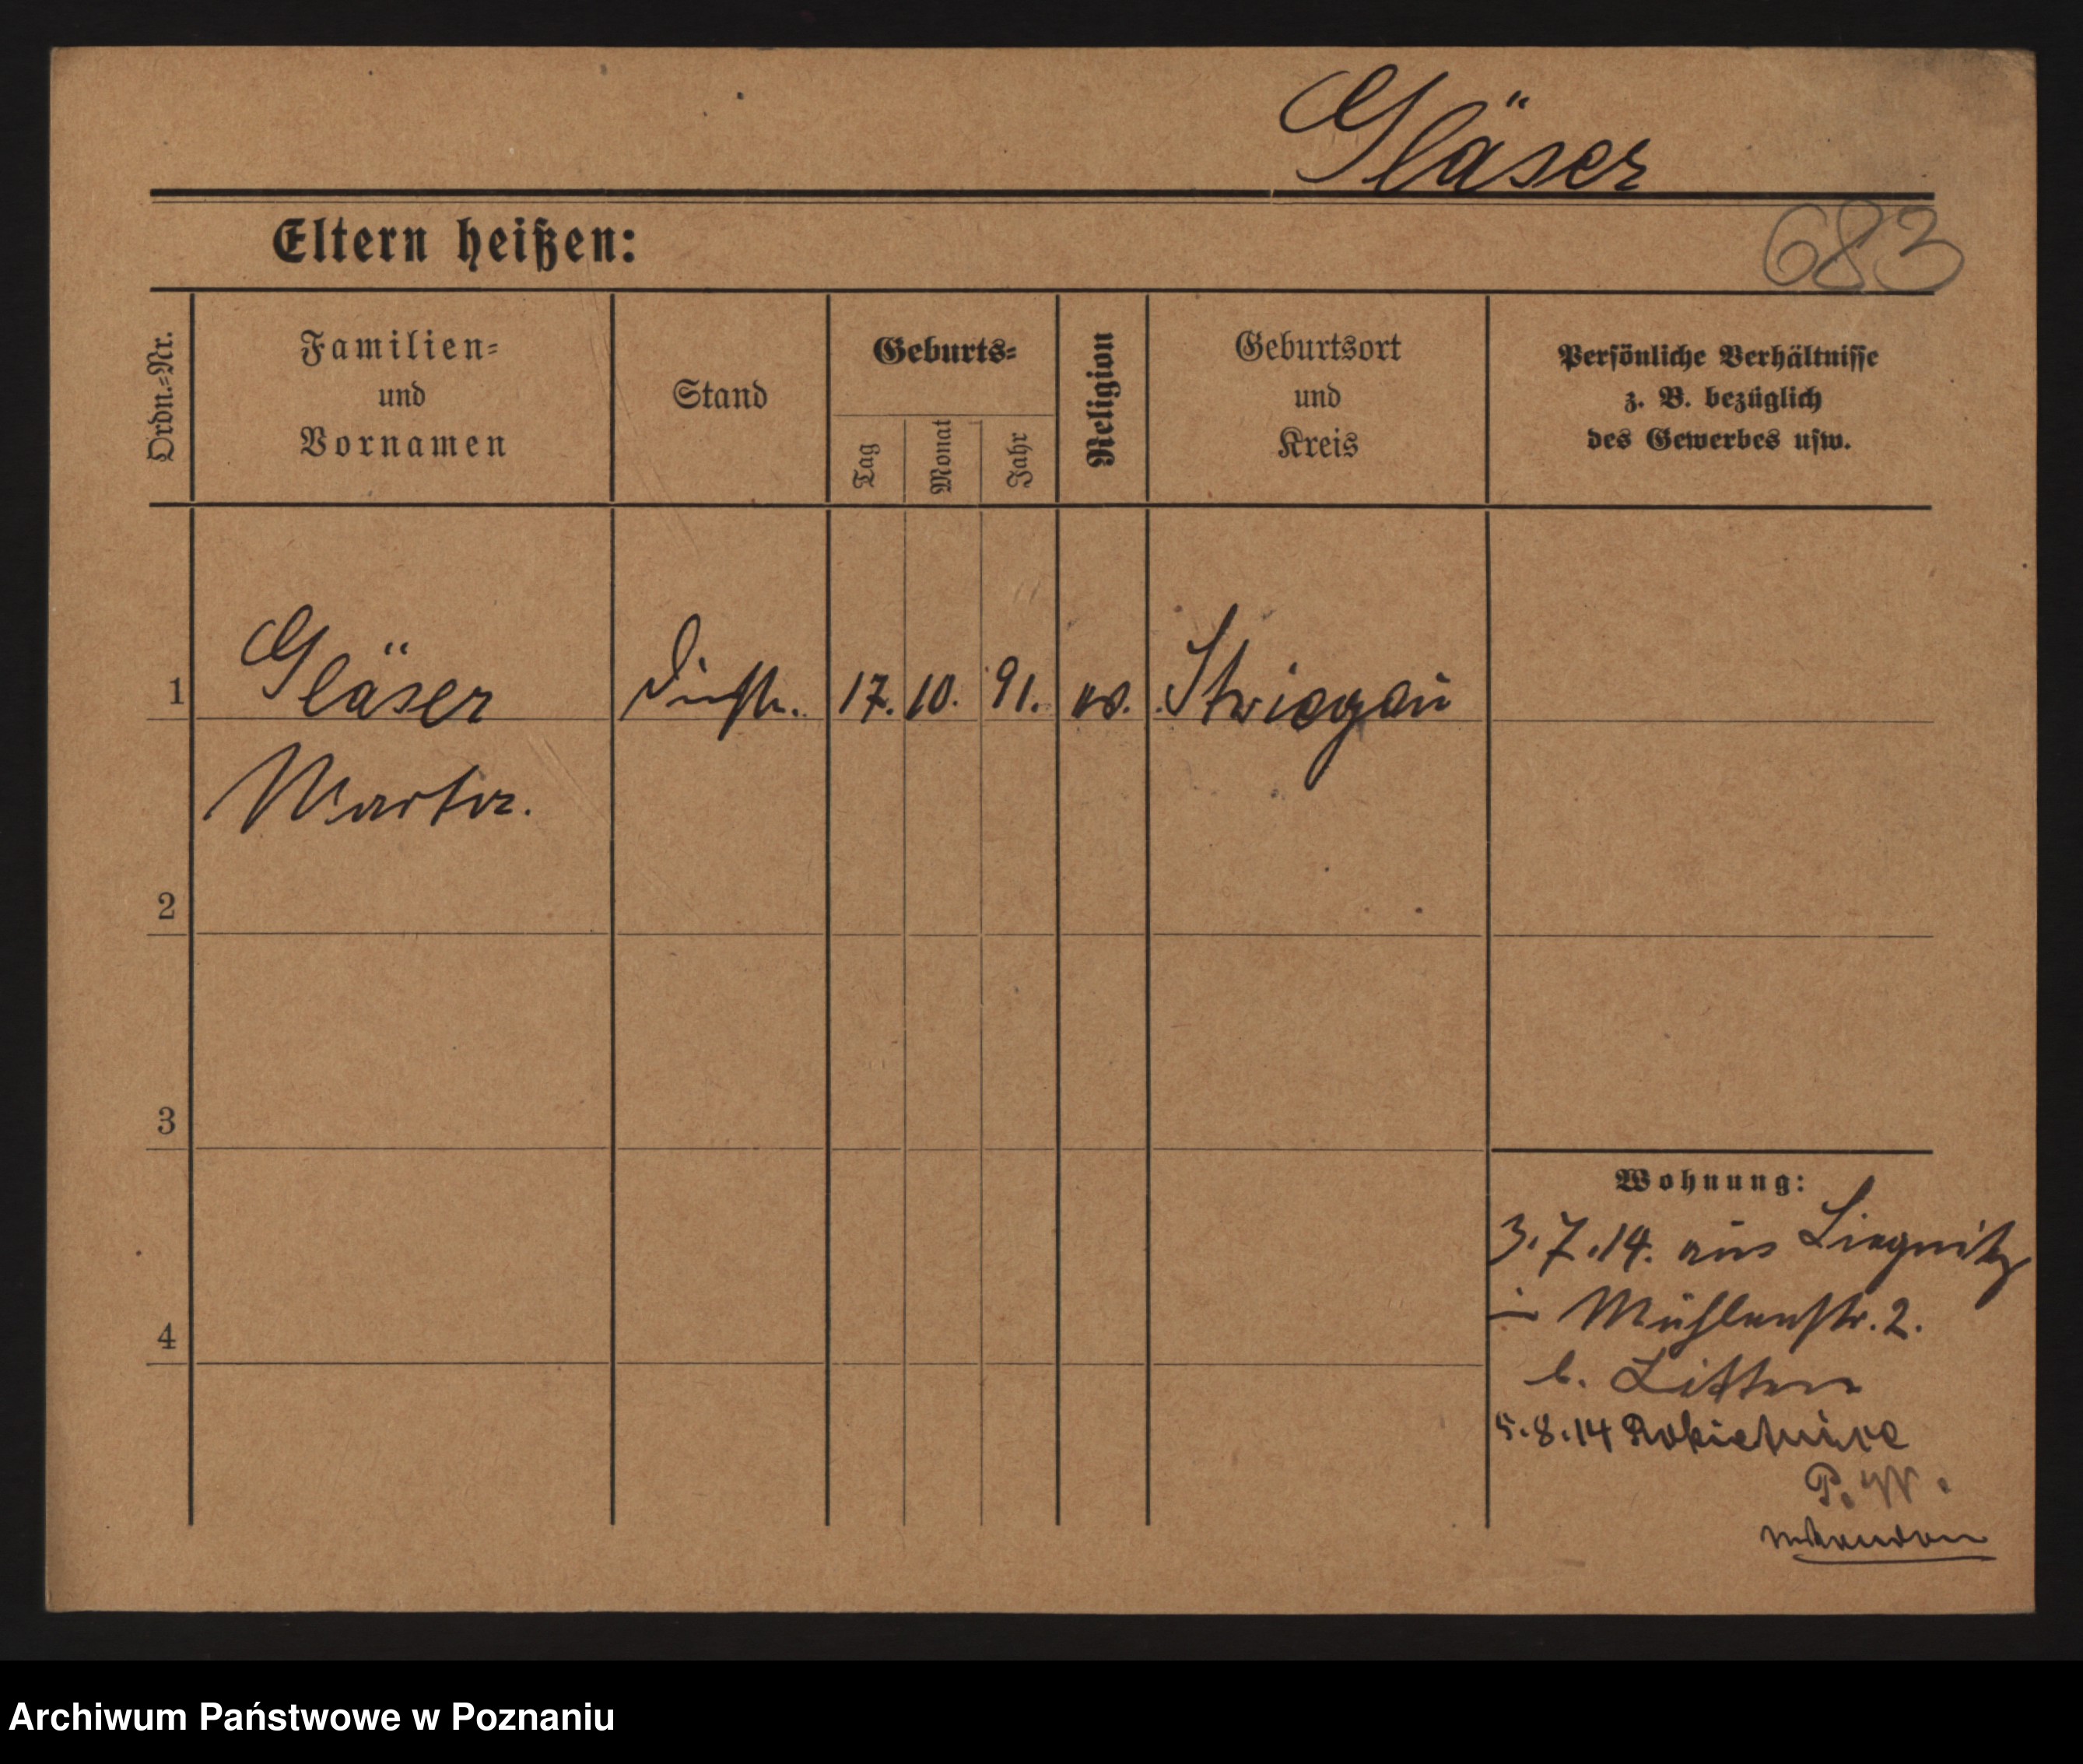 Gläser
683
Eltern heißen:
Ordn.-Nr.
Familien-
und
Vornamen
Stand
Geburts-
Tag
Monat
Jahr
Religion
Geburtsort
und
Kreis
Persönliche Verhältnisse
z. B. bezüglich
des Gewerbes usw.
1
Gläser
17. 10. 91. ev. Striegau
Marta.
2
3
4
Wohnung:
3.7.14. aus Liegnitz
Mühlenstr. 2.
b.
5.8.14 Rokietnice
P. W.
Archiwum Państwowe w Poznaniu